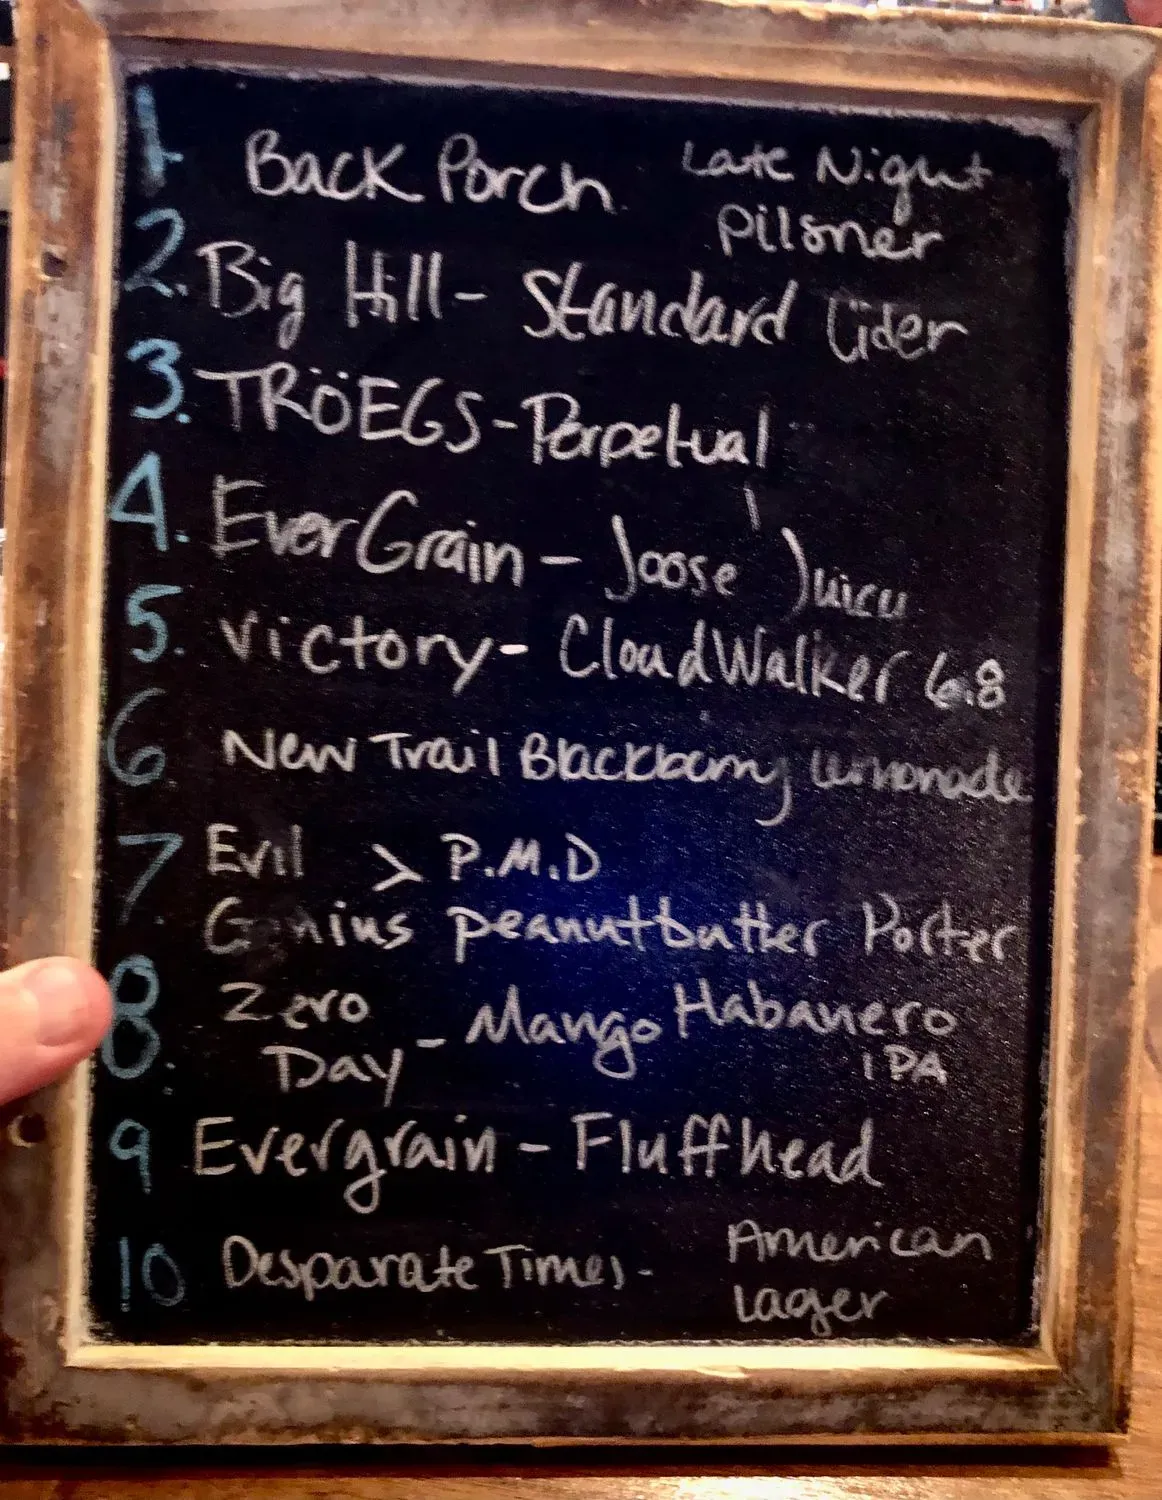 1. Back Porch Late Night
Pilsner
2. Big Hill - Standard Cider
3. TRÖEGS - Perpetual
4. EverGrain - Joose Juicy
5. Victory - CloudWalker 6.8
6 New Trail Blackberry Lemonade
7. Evil > P.M.D
Genius peanutbutter Porter
8. Zero
Day - Mango Habanero
IPA
9 Evergrain - Fluffhead
10 Desparate Times - American
Lager